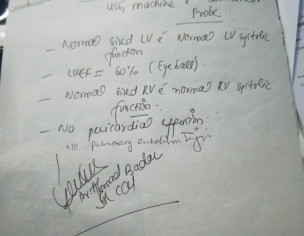 USG machine & 
Probe.
- Normal sized LV c̄ Normal LV systolic
function
- LVEF = 60% (Eyeball).
- Normal sized RV c̄ normal RV systolic
function.
- No pericardial effusion.
No Pulmonary embolism sign
Dr. Ahmad Badar